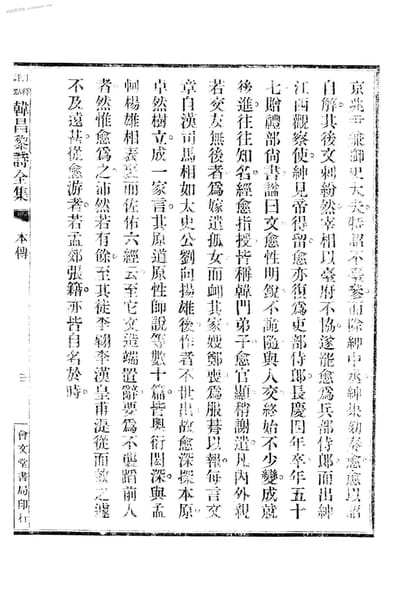 京兆尹兼御史大夫特詔不臺參而除紳中丞紳果劾奏愈愈以詔
自解其後文刺紛然宰相以臺府不協遂罷愈爲兵部侍郎而出紳
江西觀察使紳見帝得留愈亦復爲吏部侍郎長慶四年卒年五十
七贈禮部尚書諡曰文愈性明銳不詭隨與人交終始不少變成就
後進往往知名經愈指授皆稱韓門弟子愈官顯稍謝遣凡內外親
若交友無後者爲嫁遣孤女而卹其家嫂鄭喪爲服朞以報每言文
章自漢司馬相如太史公劉向揚雄後作者不世出故愈深探本原
卓然樹立成一家言其原道原性師說等數十篇皆奧衍閎深與孟
軻揚雄相表裏而佐佑六經云至它文造端置辭要爲不襲蹈前人
者然惟愈爲之沛然若有餘至其徒李翱李漢皇甫湜從而效之遽
不及遠甚從愈游者若孟郊張籍亦皆自名於時
韓昌黎詩全集
本傳
三
會文堂書局印行